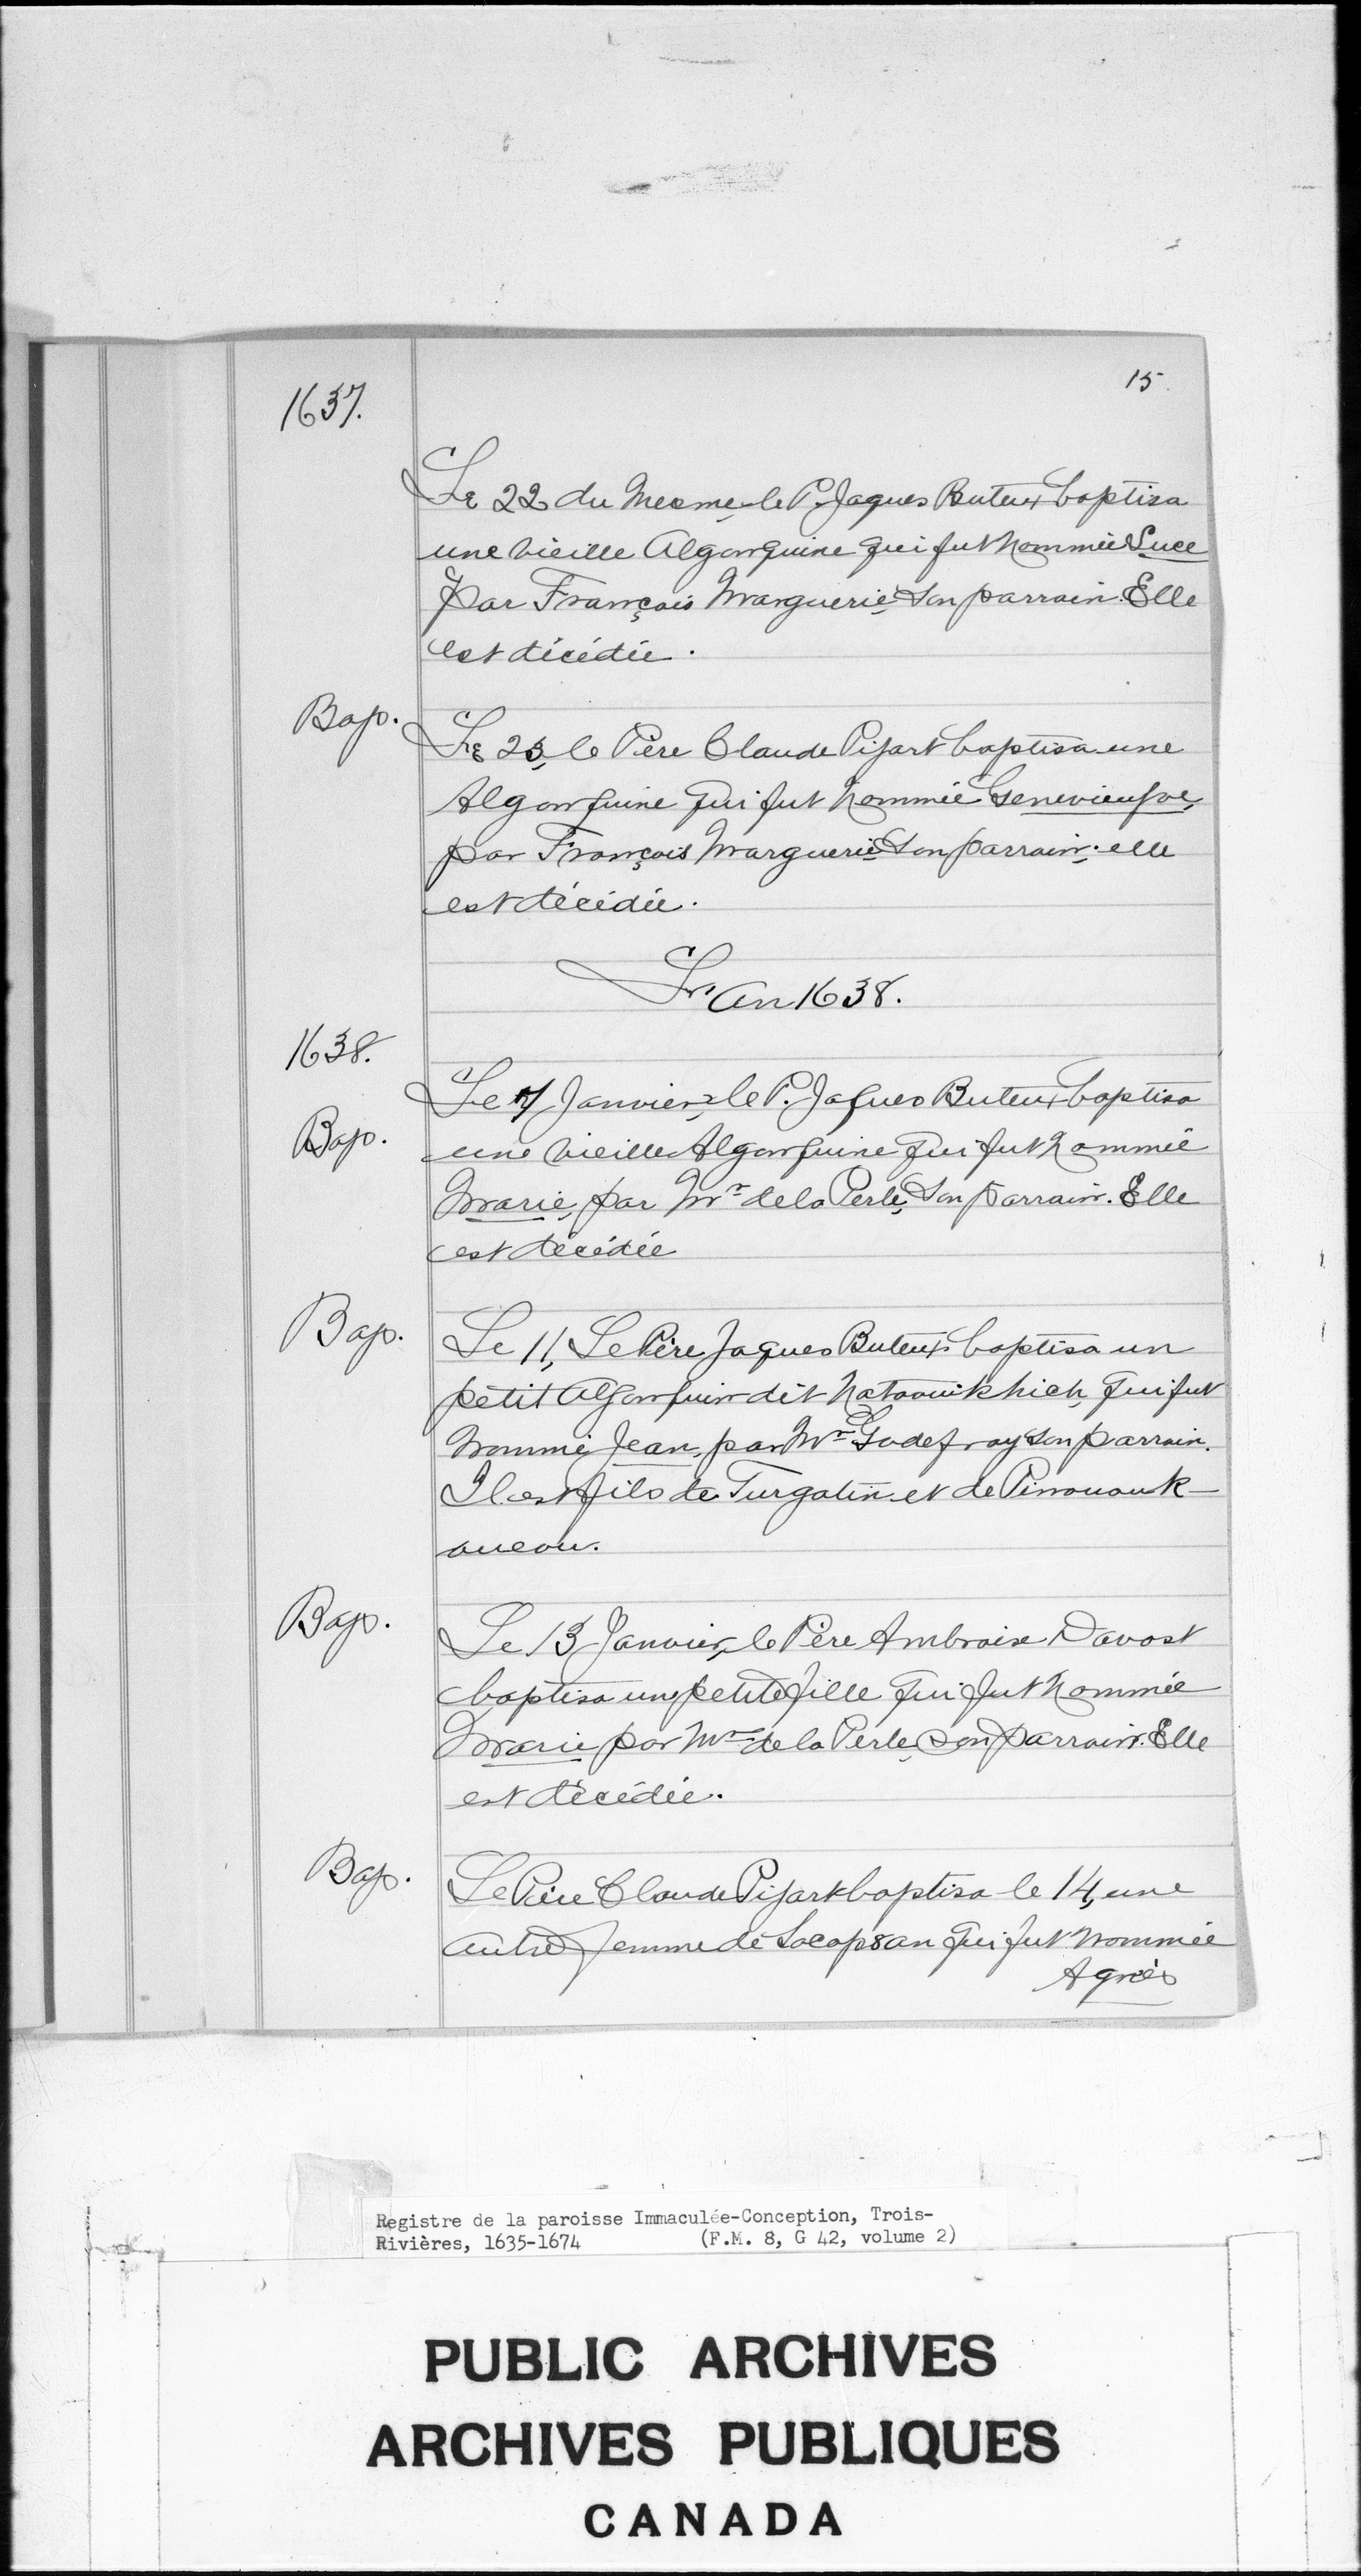 15.
1637.
Le 22 du mesme, le P. Jaques Buteux baptisa
une vieille Algonquine qui fut nommée Luce
par François Marguerie, son parrain. Elle
est décédée.
Bap.
Le 23, le Père Claude Pijart baptisa une
Algonquine qui fut nommée Genevieufve,
par François Marguerie, son parrain; elle
est décédée.
L'An 1638.
1638.
Le 7 Janvier, le P. Jaques Buteux baptisa
Bap.
une vieille Algonquine qui fut nommée
Marie, par Mr de la Perle, son parrain. Elle
est décédée
Bap.
Le 11, Le Père Jaques Buteux baptisa un
petit Algonquin dit qui fut
nommé Jean, par Mr Godefroy son parrain.
Il est fils de Turgatin et de Pirouauk-
aueou.
Bap.
Le 13 Janvier, le Père Ambroise Davost
baptisa une petite fille qui fut nommée
Marie par Mr de la Perle, son parrain. Elle
est décédée.
Bap.
Le Père Claude Pijart baptisa le 14, une
autre femme de qui fut nommée
Agnès
Registre de la paroisse Immaculée-Conception, Trois-
Rivières, 1635-1674 (F.M. 8, G 42, volume 2)
PUBLIC ARCHIVES
ARCHIVES PUBLIQUES
CANADA